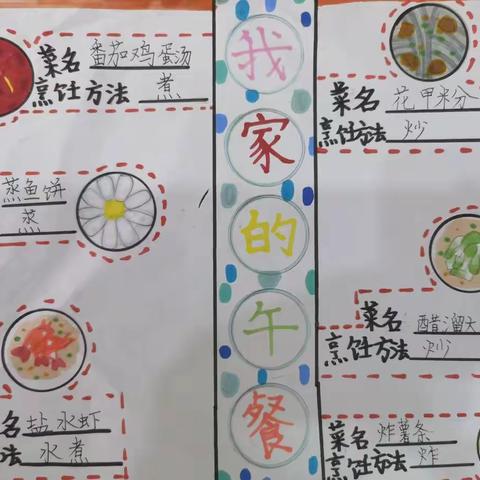 我家的午餐
菜名 番茄鸡蛋汤
烹饪方法 煮
蒸鱼饼
蒸
名 盐水虾
法 水煮
菜名 花甲米分
烹饪方法 炒
菜名 醋溜大
烹饪方法 炒
菜名 炸薯条
烹饪方法 炸